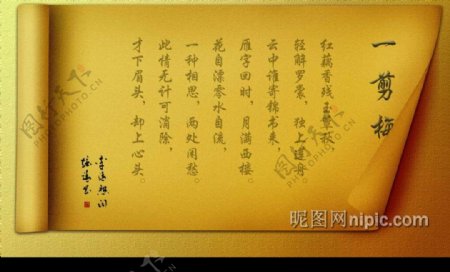 一剪梅
红藕香残玉簟秋
轻解罗裳,独上兰舟
云中谁寄锦书来,
雁字回时,月满西楼
花自漂零水自流,
一种相思,两处闲愁
此情无计可消除,
才下眉头,却上心头
昵图网nipic.com